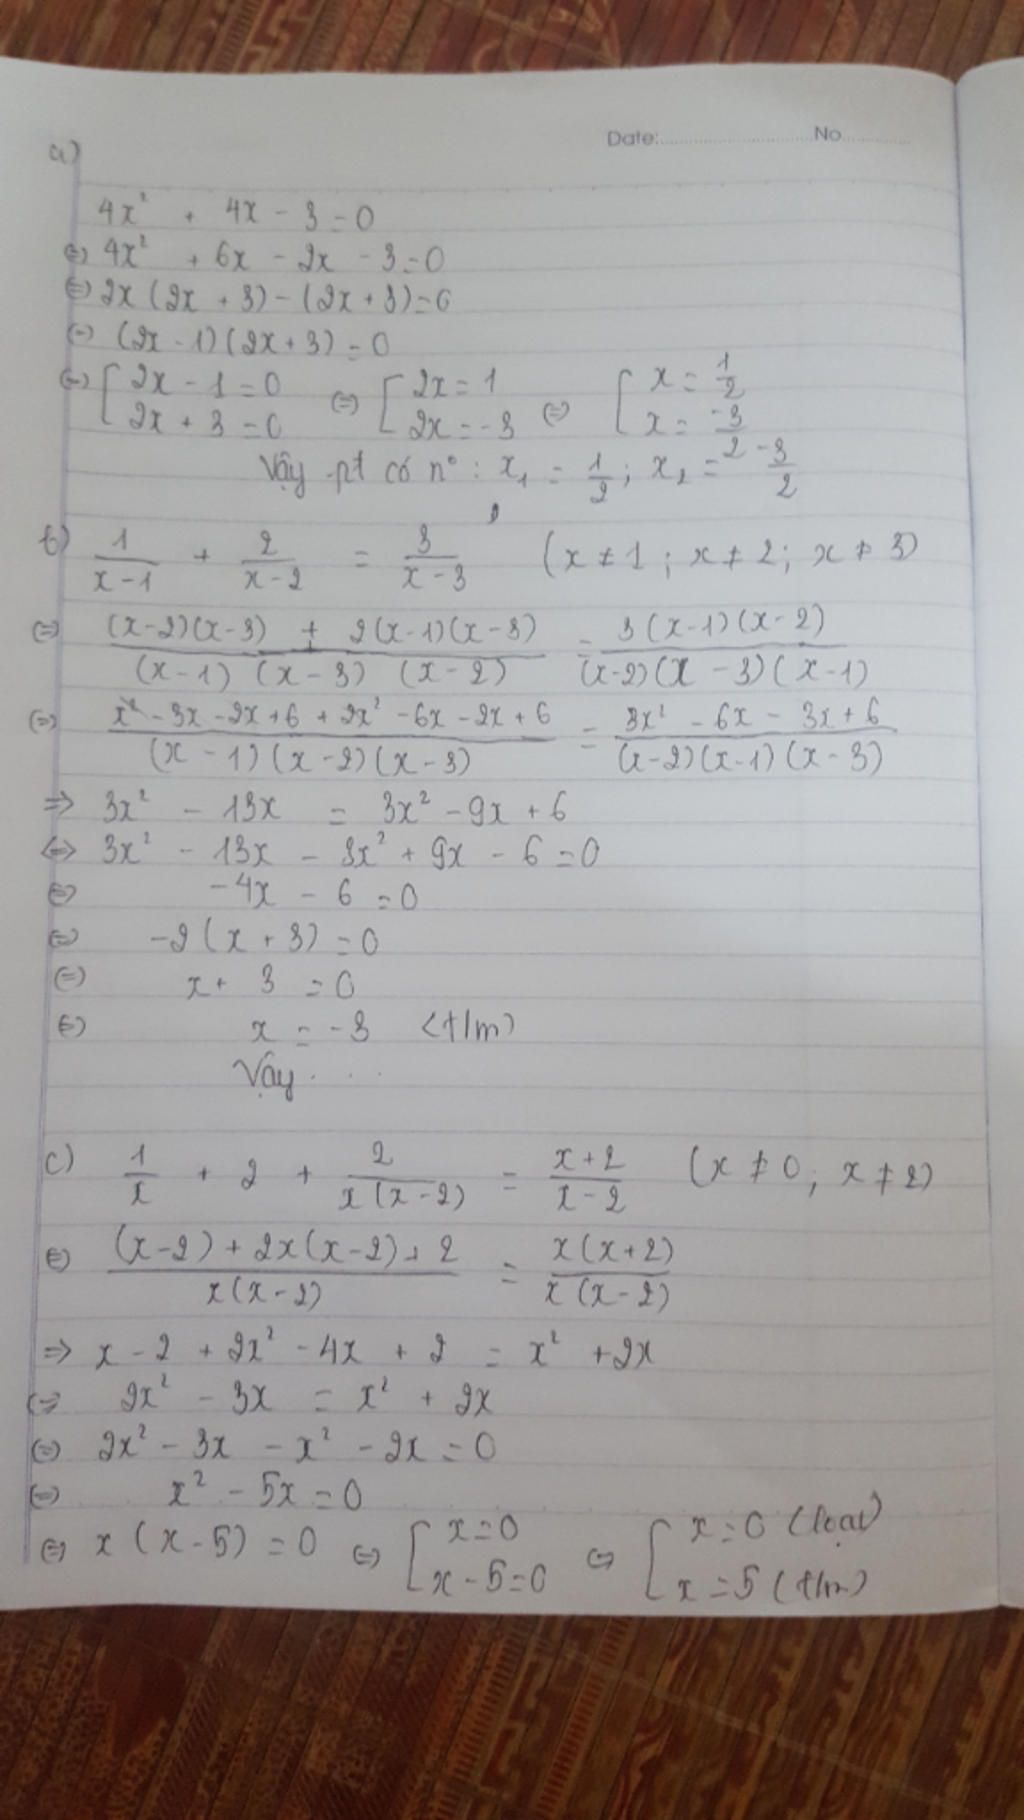 Date:............No............
a)
4x² + 4x - 3 = 0
(=) 4x² + 6x - 2x - 3 = 0
(=) 2x (2x + 3) - (2x + 3) = 0
(=) (2x - 1) (2x + 3) = 0
(=) [ 2x - 1 = 0 (=) [ 2x = 1 (=) [ x = 1/2
2x + 3 = 0 2x = -3 x = -3/2
Vậy pt có n° : x₁ = 1/2 ; x₂ = -3/2
b) 1/(x-1) + 2/(x-2) = 3/(x-3) (x ≠ 1 ; x ≠ 2 ; x ≠ 3)
(=) ((x-2)(x-3) + 2(x-1)(x-3))/((x-1) (x-3) (x-2)) = 3(x-1)(x-2)/((x-2)(x-3)(x-1))
(=) (x² - 3x - 2x + 6 + 2x² - 6x - 2x + 6)/((x-1)(x-2)(x-3)) = (3x² - 6x - 3x + 6)/((x-2)(x-1)(x-3))
=> 3x² - 13x = 3x² - 9x + 6
<=> 3x² - 13x - 3x² + 9x - 6 = 0
(=) -4x - 6 = 0
(=) -2 (x + 3) = 0
(=) x + 3 = 0
(=) x = -3 (t/m)
Vậy . . .
c) 1/x + 2 + 2/(x(x-2)) = (x+2)/(x-2) (x ≠ 0 ; x ≠ 2)
(=) ((x-2) + 2x(x-2) + 2)/(x(x-2)) = x(x+2)/(x(x-2))
=> x - 2 + 2x² - 4x + 2 = x² + 2x
(=) 2x² - 3x = x² + 2x
(=) 2x² - 3x - x² - 2x = 0
(=) x² - 5x = 0
(=) x (x - 5) = 0 (=) [ x = 0 (=) [ x = 0 (loại)
x - 5 = 0 x = 5 (t/m)